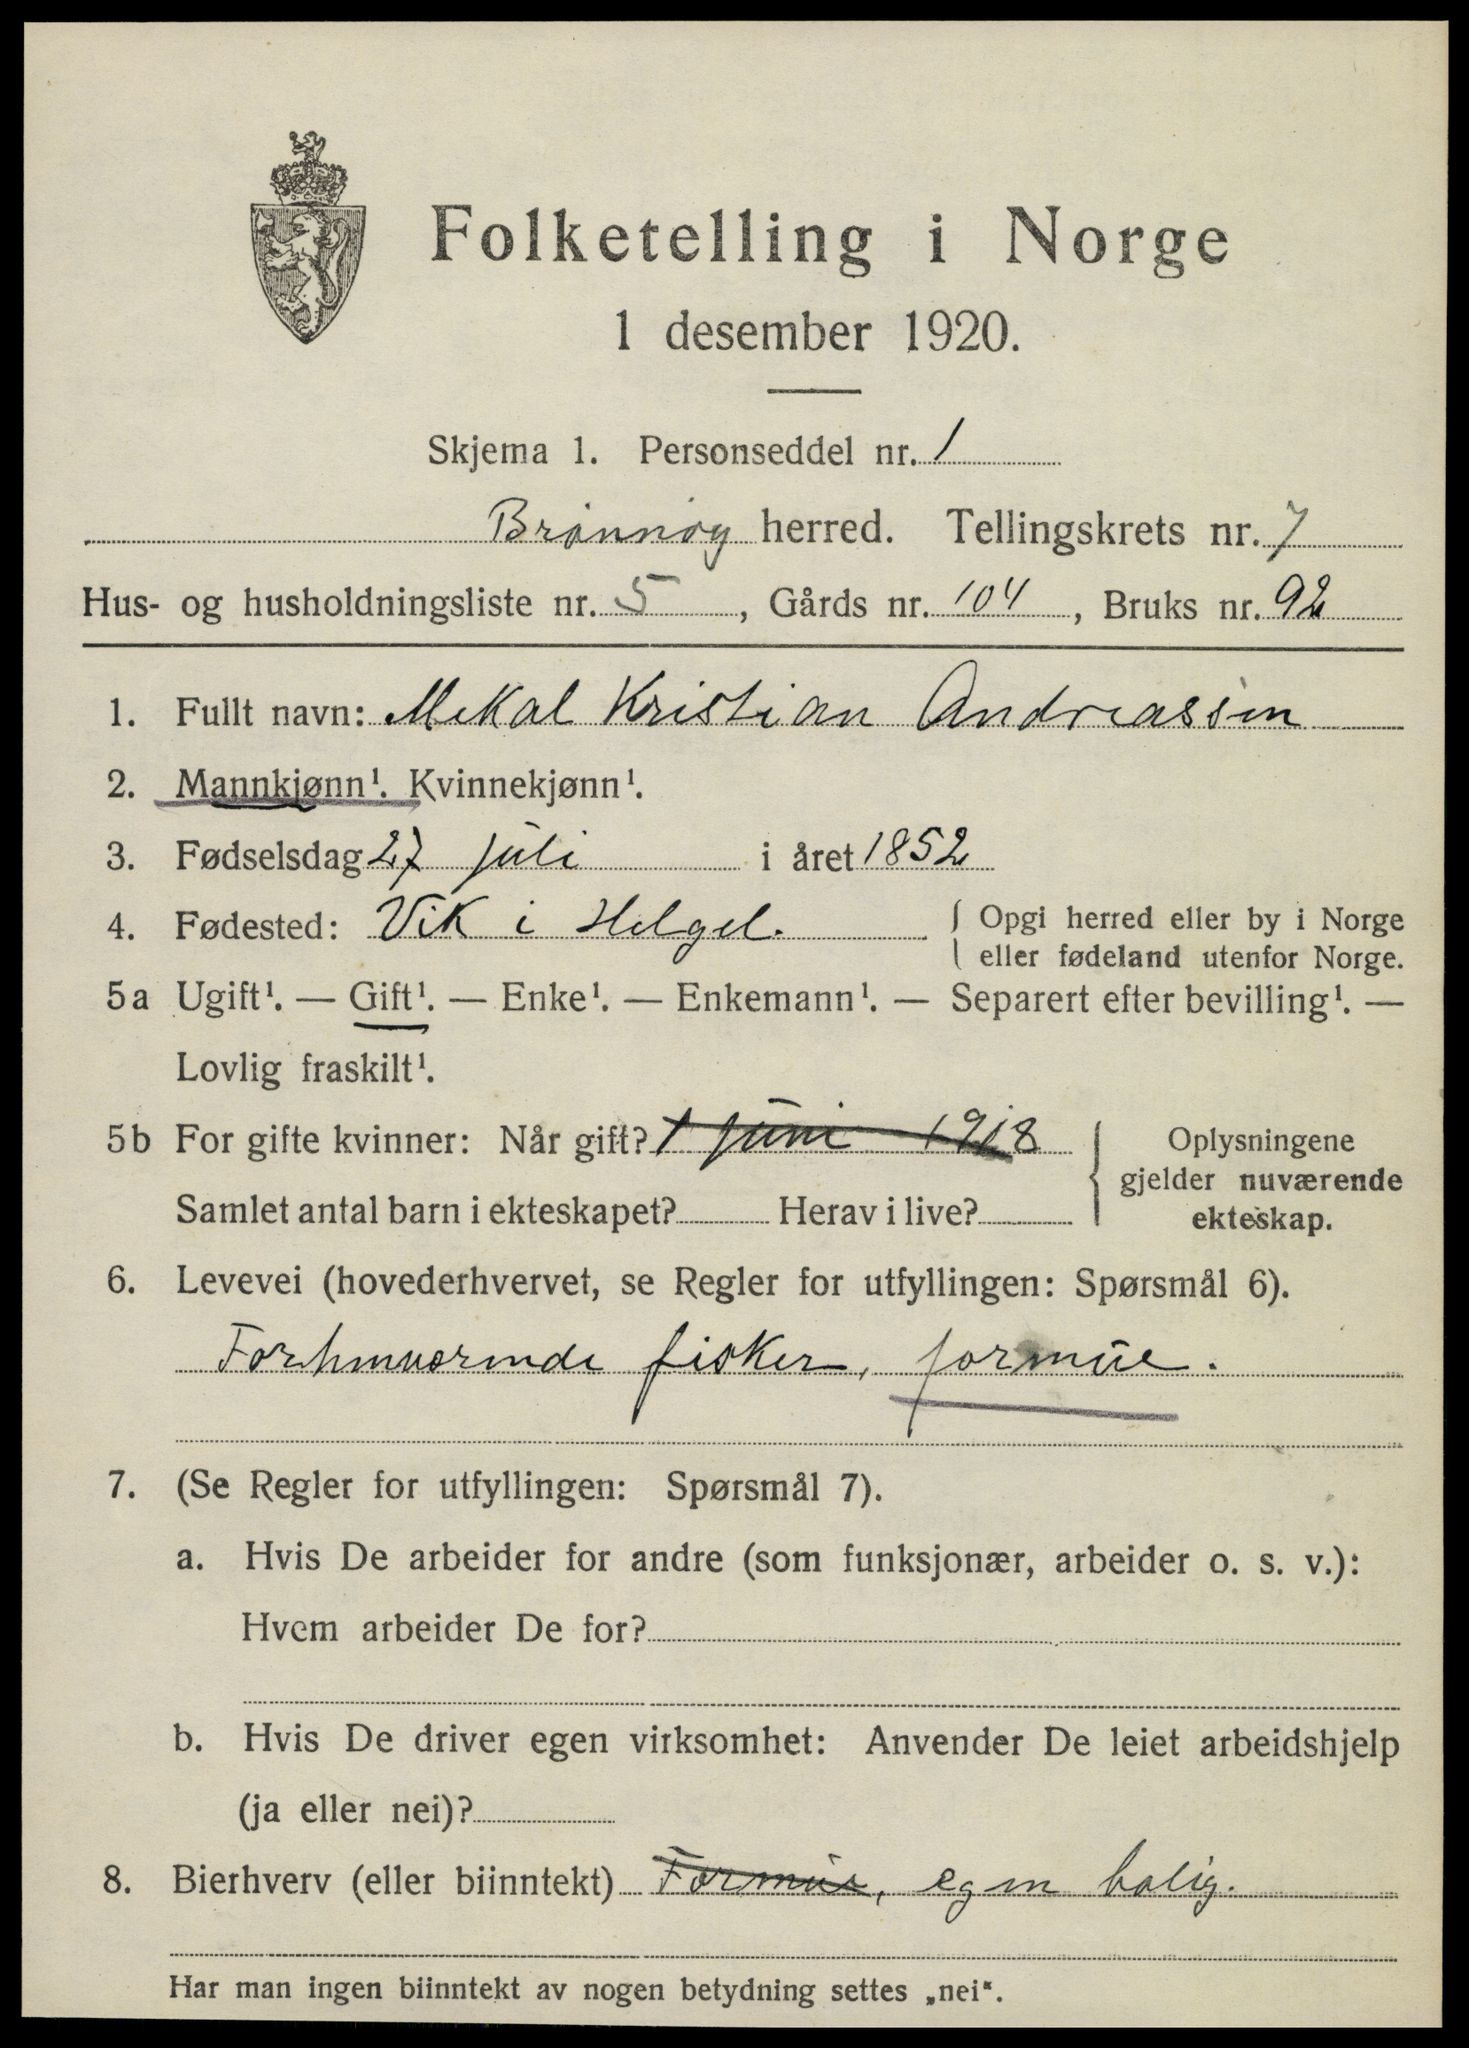 Folketelling i Norge
1 desember 1920.
Skjema 1. Personseddel nr. 1
Brønnøy herred. Tellingskrets nr. 7
Hus- og husholdningsliste nr. 5, Gårds nr. 104, Bruks nr. 92
1. Fullt navn: Mekal Kristian Andreassen
2. Mannkjønn¹. Kvinnekjønn¹.
3. Fødselsdag 27 juli i året 1852
4. Fødested: Vik i Helgel. { Opgi herred eller by i Norge
eller fødeland utenfor Norge.
5a Ugift¹. — Gift¹. — Enke¹. — Enkemann¹. — Separert efter bevilling¹. —
Lovlig fraskilt¹.
5b For gifte kvinner: Når gift? 1 juni 1918 { Oplysningene
gjelder nuværende
Samlet antal barn i ekteskapet? Herav i live? ekteskap.
6. Levevei (hovederhvervet, se Regler for utfyllingen: Spørsmål 6).
Forhenværende fisker, formue.
7. (Se Regler for utfyllingen: Spørsmål 7).
a. Hvis De arbeider for andre (som funksjonær, arbeider o. s. v.):
Hvem arbeider De for?
b. Hvis De driver egen virksomhet: Anvender De leiet arbeidshjelp
(ja eller nei)?
8. Bierhverv (eller biinntekt) Formue, egen bolig.
Har man ingen biinntekt av nogen betydning settes „nei“.